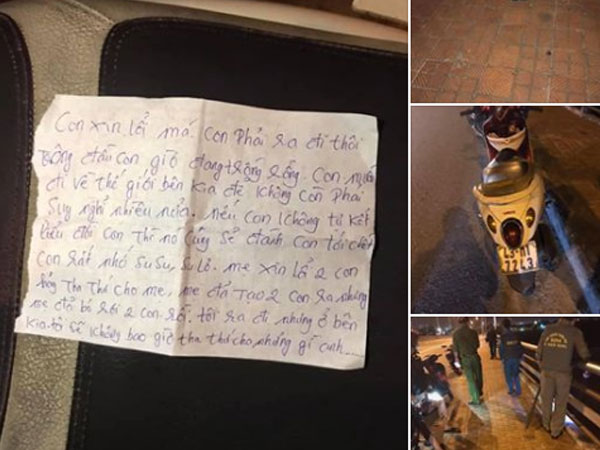 Con xin lổi má. Con Phải ra đi thôi
trong đầu con giờ đang trống rỗng. Con muốn
đi về thế giới bên kia để không còn phải
suy nghĩ nhiều nữa. nếu con không tự kết
liểu đời con thì nó cũng sẽ đánh con tới chết
con rất nhớ SuSu, Su Lo. mẹ xin lổi 2 con
hãy Tha Thứ cho mẹ, mẹ đã Tạo 2 con ra nhưng
mẹ đã bỏ rơi 2 con rồi. tôi ra đi nhưng ở bên
kia tôi sẽ không bao giờ tha thứ cho những gì anh......
43
7243